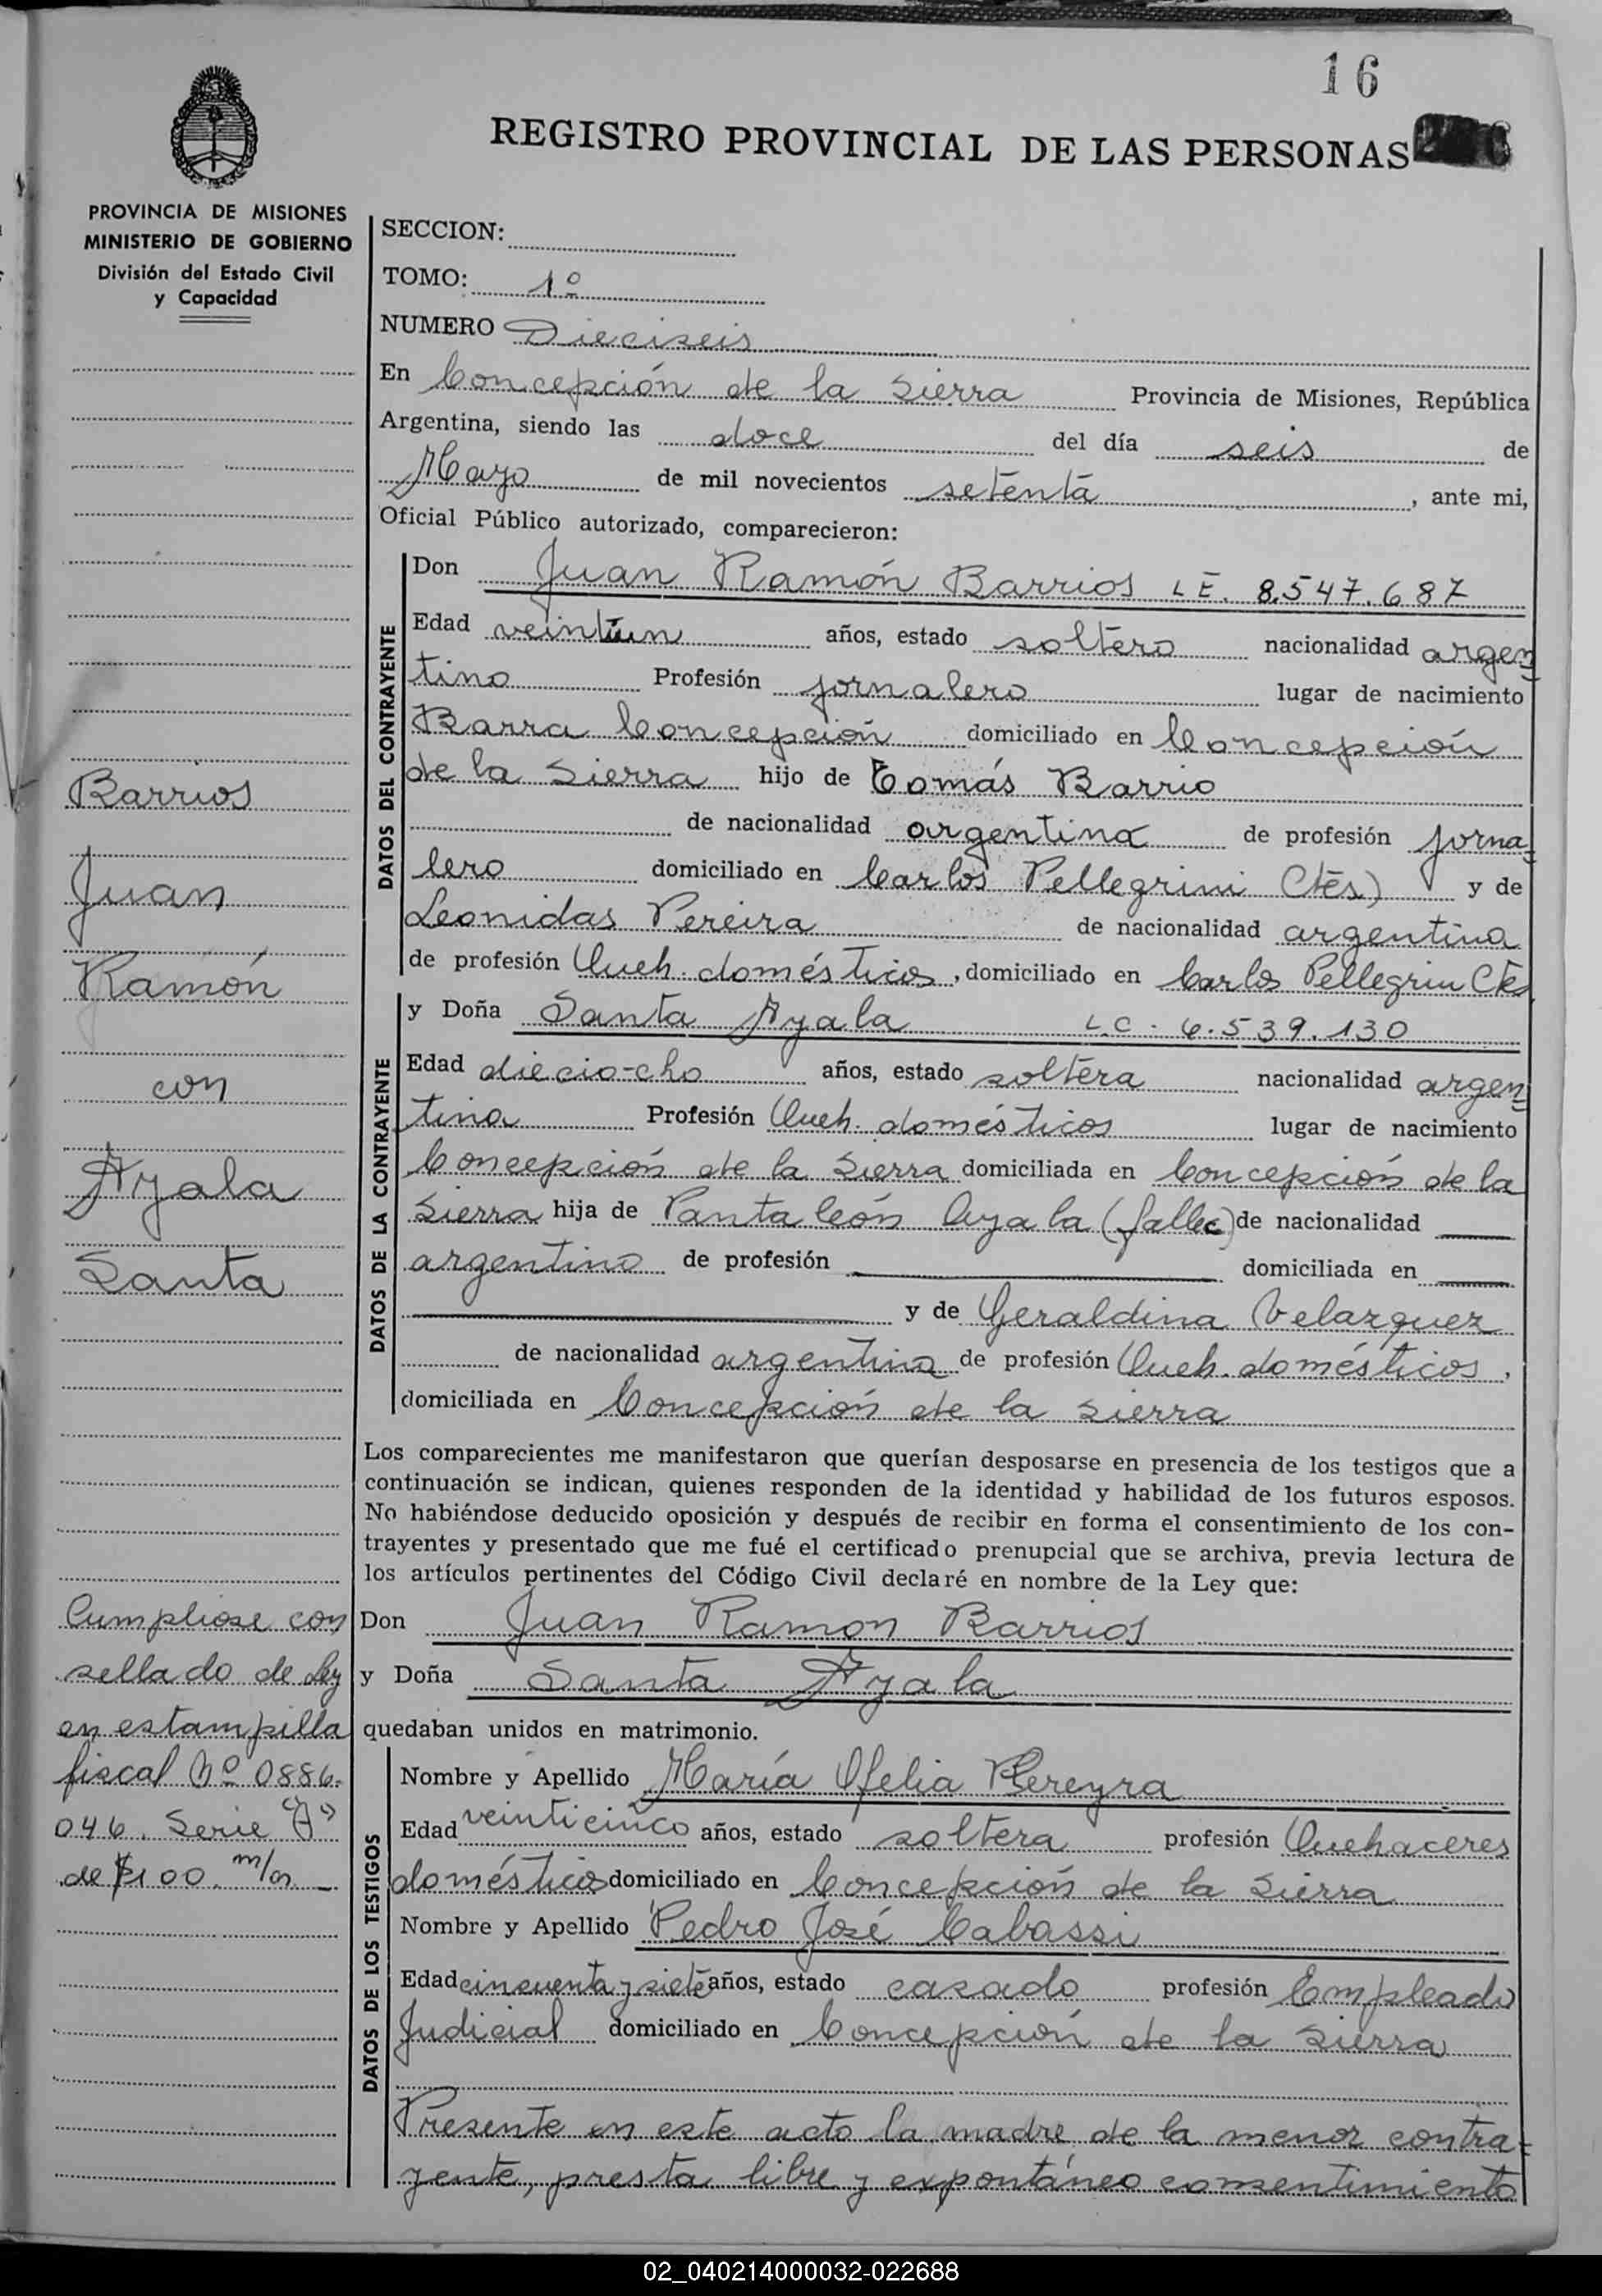 16
REGISTRO PROVINCIAL DE LAS PERSONAS
PROVINCIA DE MISIONES
MINISTERIO DE GOBIERNO
División del Estado Civil
y Capacidad
Barrios
Juan
Ramón
con
Ayala
Santa
Cumpliose con
sellado de Ley
en estampilla
fiscal Nº 0886.
046. Serie "A"
de $100. m/n. _
SECCION:
TOMO: 1º
NUMERO Dieciseis
En Concepción de la Sierra Provincia de Misiones, República
Argentina, siendo las doce del día seis de
Mayo de mil novecientos setenta, ante mi,
Oficial Público autorizado, comparecieron:
DATOS DEL CONTRAYENTE
Don Juan Ramón Barrios L E. 8.547.687
Edad veintiun años, estado soltero nacionalidad argen=
tino Profesión jornalero lugar de nacimiento
Barra Concepción domiciliado en Concepción
de la Sierra hijo de Tomás Barrio
de nacionalidad argentina de profesión jorna=
lero domiciliado en Carlos Pellegrini Ctes) y de
Leonidas Pereira de nacionalidad argentina
de profesión Queh. domésticos, domiciliado en Carlos Pellegrini Ctes
DATOS DE LA CONTRAYENTE
y Doña Santa Ayala L.C. 6.539.130
Edad diecio-cho años, estado soltera nacionalidad argen=
tina Profesión Queh. domésticos lugar de nacimiento
Concepción de la Sierra domiciliada en Concepción de la
Sierra hija de Pantaleón Ayala (fallec) de nacionalidad
argentino de profesión domiciliada en
y de Geraldina Velazquez
de nacionalidad argentina de profesión Queh. domésticos,
domiciliada en Concepción de la Sierra
Los comparecientes me manifestaron que querían desposarse en presencia de los testigos que a
continuación se indican, quienes responden de la identidad y habilidad de los futuros esposos.
No habiéndose deducido oposición y después de recibir en forma el consentimiento de los con-
trayentes y presentado que me fué el certificado prenupcial que se archiva, previa lectura de
los artículos pertinentes del Código Civil declaré en nombre de la Ley que:
Don Juan Ramon Barrios
y Doña Santa Ayala
quedaban unidos en matrimonio.
DATOS DE LOS TESTIGOS
Nombre y Apellido María Ofelia Pereyra
Edad veinticinco años, estado soltera profesión Quehaceres
domésticos domiciliado en Concepción de la Sierra
Nombre y Apellido Pedro José Cabassi
Edad cincuenta y siete años, estado casado profesión Empleado
Judicial domiciliado en Concepción de la Sierra
Presente en este acto la madre de la menor contra=
yente, presta libre y expontáneo consentimiento
02_040214000032-022688